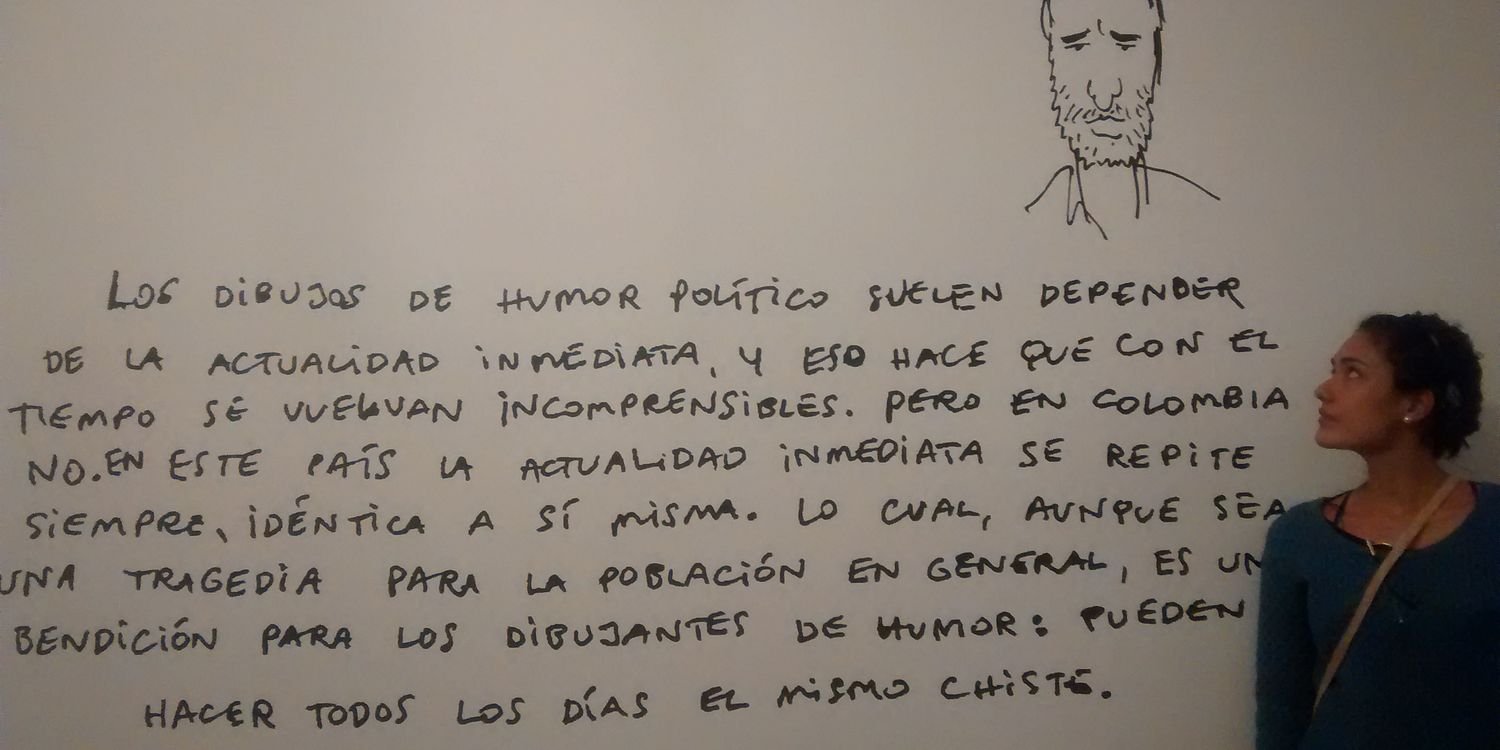 LOS DIBUJOS DE HUMOR POLÍTICO SUELEN DEPENDER
DE LA ACTUALIDAD INMEDIATA, Y ESO HACE QUE CON EL
TIEMPO SE VUELVAN INCOMPRENSIBLES. PERO EN COLOMBIA
NO. EN ESTE PAÍS LA ACTUALIDAD INMEDIATA SE REPITE
SIEMPRE, IDÉNTICA A SÍ MISMA. LO CUAL, AUNQUE SEA
UNA TRAGEDIA PARA LA POBLACIÓN EN GENERAL, ES UN
BENDICIÓN PARA LOS DIBUJANTES DE HUMOR: PUEDEN
HACER TODOS LOS DÍAS EL MISMO CHISTE.